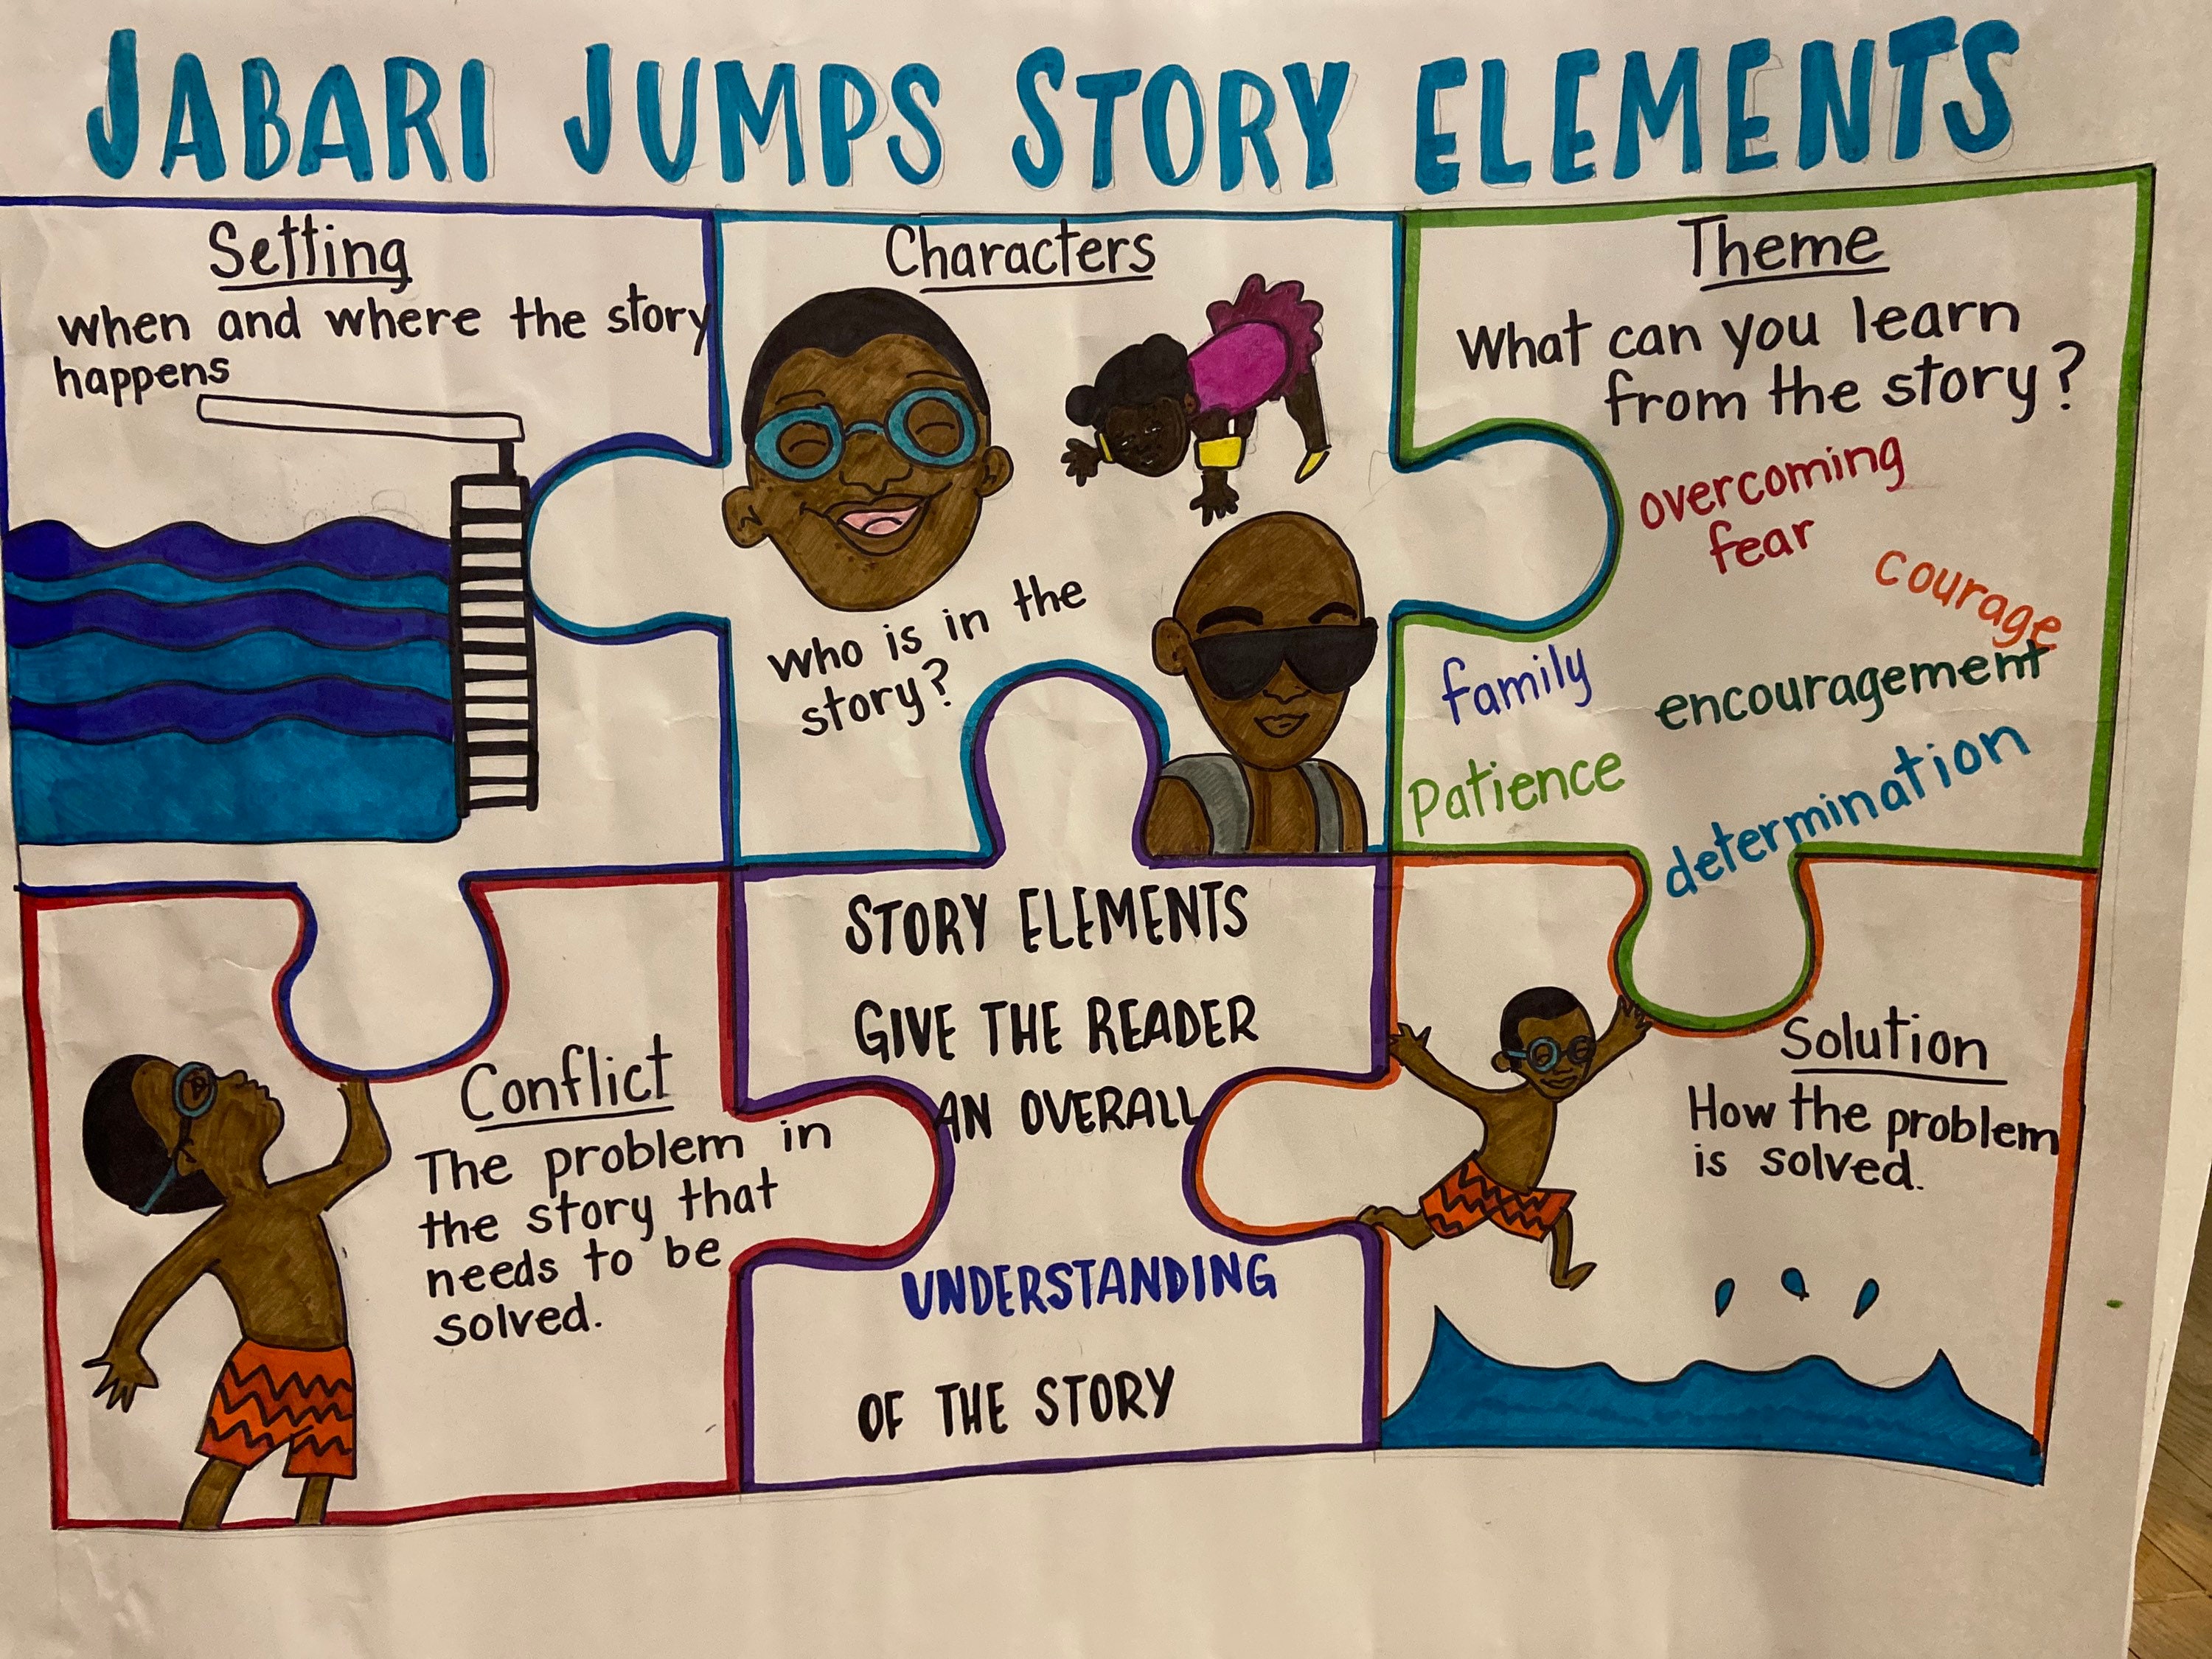 JABARI JUMPS STORY ELEMENTS
Setting
when and where the story
happens
Characters
who is in the
story?
Theme
What can you learn
from the story?
overcoming
fear
courage
family
encouragement
Patience
determination
Conflict
The problem in
the story that
needs to be
solved.
STORY ELEMENTS
GIVE THE READER
AN OVERALL
UNDERSTANDING
OF THE STORY
Solution
How the problem
is solved.